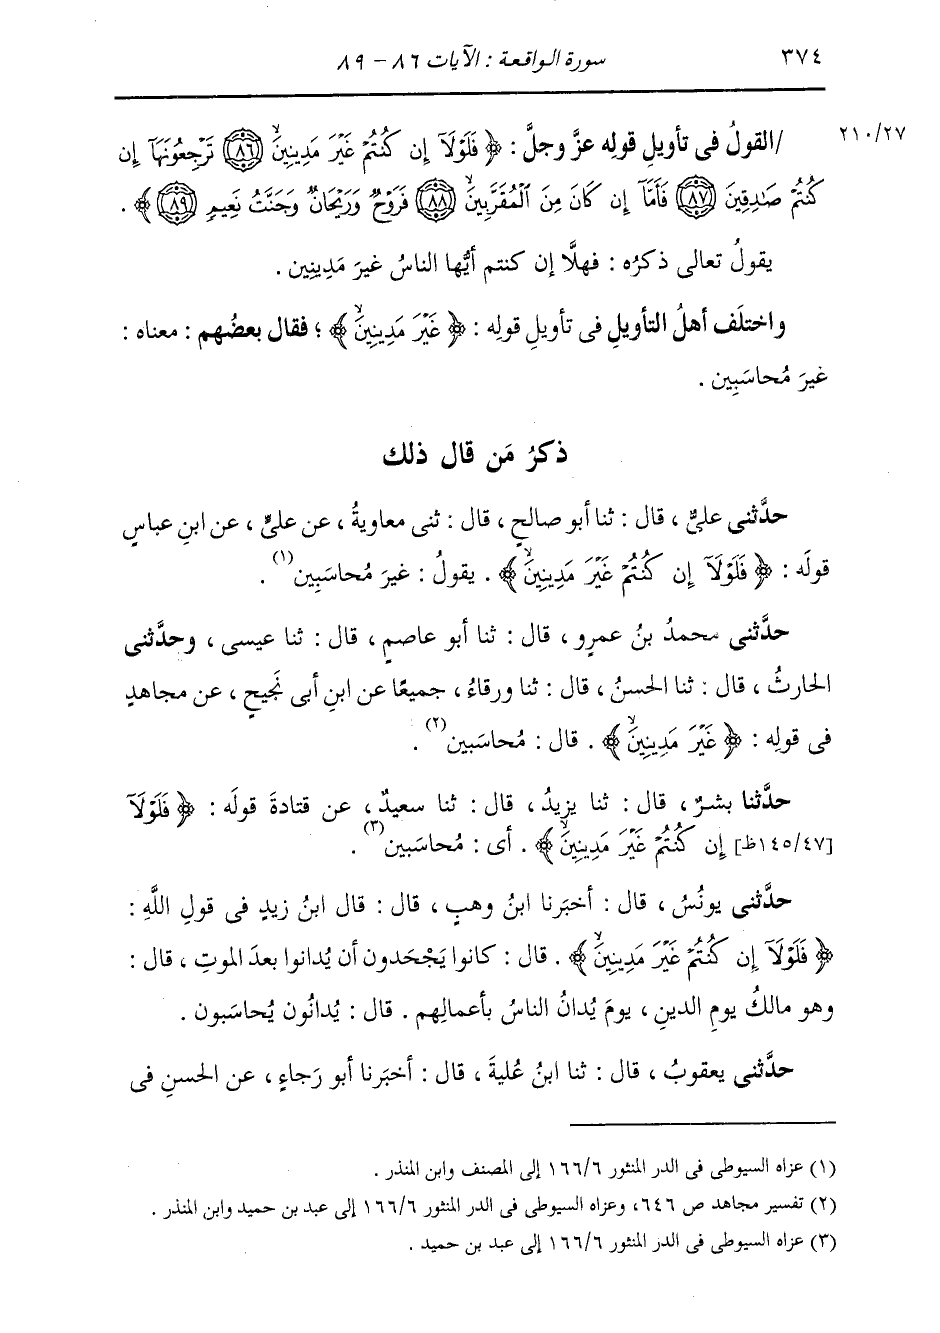 ٣٧٤ سورة الواقعة : الآيات ٨٦ - ٨٩
٢١٠/٢٧ /القولُ فى تأويلِ قولِه عزَّ وجلَّ : ﴿ فَلَوْلَآ إِن كُنتُمْ غَيْرَ مَدِينِينَۙ ﴿٨٦﴾ تَرْجِعُونَهَآ إِن
كُنتُمْ صَٰدِقِينَ ﴿٨٧﴾ فَأَمَّآ إِن كَانَ مِنَ ٱلْمُقَرَّبِينَۙ ﴿٨٨﴾ فَرَوْحٌ وَرَيْحَانٌ وَجَنَّتُ نَعِيمٍ ﴿٨٩﴾ ﴾ .
يقولُ تعالى ذكرُه : فهلَّا إن كنتم أيُّها الناسُ غيرَ مَدِينِين .
واختلَف أهلُ التأويلِ فى تأويلِ قولِه : ﴿ غَيْرَ مَدِينِينَۙ ﴾ ؛ فقال بعضُهم : معناه :
غيرَ مُحاسَبِين .
ذكرُ مَن قال ذلك
حدَّثنى علىٌّ ، قال : ثنا أبو صالحٍ ، قال : ثنى معاويةُ ، عن علىٍّ ، عن ابنِ عباسٍ
قولَه : ﴿ فَلَوْلَآ إِن كُنتُمْ غَيْرَ مَدِينِينَۙ ﴾ . يقولُ : غيرَ مُحاسَبِين(١) .
حدَّثنى محمدُ بنُ عمرٍو ، قال : ثنا أبو عاصمٍ ، قال : ثنا عيسى ، وحدَّثنى
الحارثُ ، قال : ثنا الحسنُ ، قال : ثنا ورقاءُ ، جميعًا عن ابنِ أبى نَجيحٍ ، عن مجاهدٍ
فى قولِه : ﴿ غَيْرَ مَدِينِينَۙ ﴾ . قال : مُحاسَبين(٢) .
حدَّثنا بشرٌ ، قال : ثنا يزيدُ ، قال : ثنا سعيدٌ ، عن قتادةَ قولَه : ﴿ فَلَوْلَآ
[١٤٥/٤٧ظ] إِن كُنتُمْ غَيْرَ مَدِينِينَۙ ﴾ . أى : مُحاسَبين(٣) .
حدَّثنى يونُسُ ، قال : أخبَرنا ابنُ وهبٍ ، قال : قال ابنُ زيدٍ فى قولِ اللَّهِ :
﴿ فَلَوْلَآ إِن كُنتُمْ غَيْرَ مَدِينِينَۙ ﴾ . قال : كانوا يَجْحَدون أن يُدانوا بعدَ الموتِ ، قال :
وهو مالكُ يومِ الدينِ ، يومَ يُدانُ الناسُ بأعمالِهم . قال : يُدانُون يُحاسَبون .
حدَّثنى يعقوبُ ، قال : ثنا ابنُ عُليةَ ، قال : أخبَرنا أبو رَجاءٍ ، عن الحسنِ فى
(١) عزاه السيوطى فى الدر المنثور ١٦٦/٦ إلى المصنف وابن المنذر .
(٢) تفسير مجاهد ص ٦٤٦، وعزاه السيوطى فى الدر المنثور ١٦٦/٦ إلى عبد بن حميد وابن المنذر .
(٣) عزاه السيوطى فى الدر المنثور ١٦٦/٦ إلى عبد بن حميد .